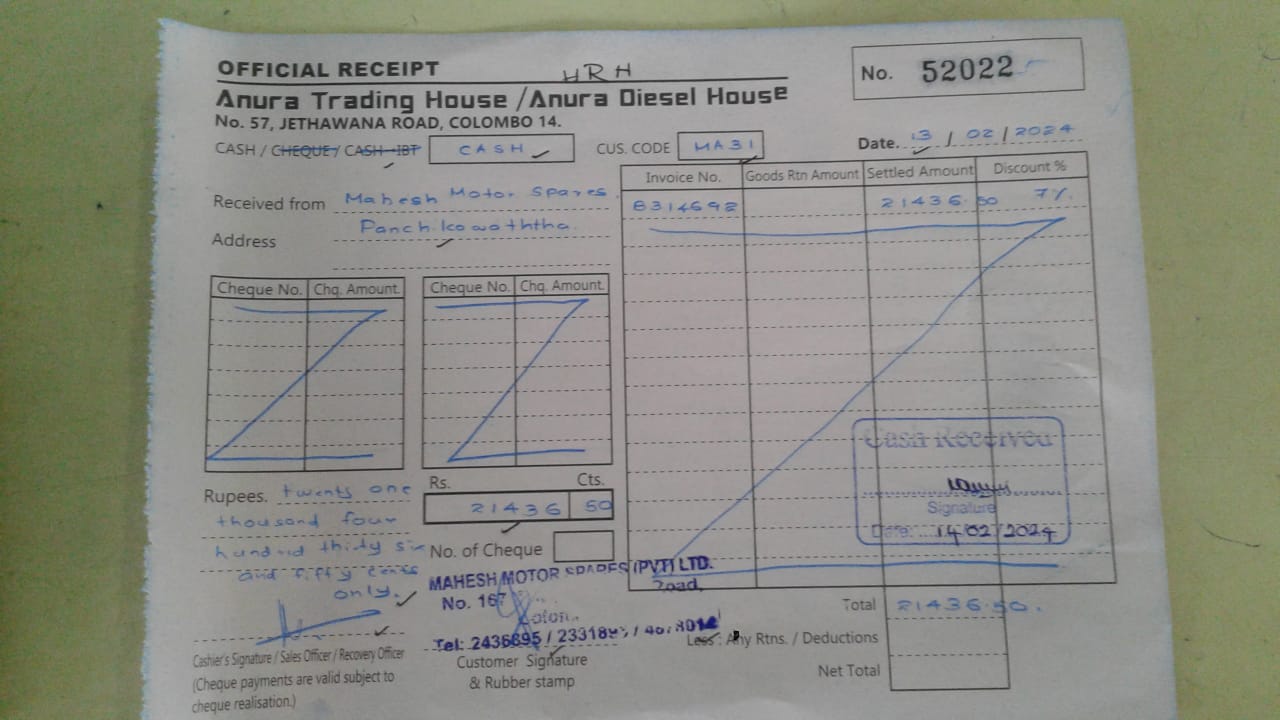 OFFICIAL RECEIPT
HRH
No. 52022
Anura Trading House / Anura Diesel House
No. 57, JETHAWANA ROAD, COLOMBO 14.
CASH / CHEQUE / CASH - IBT CASH
CUS. CODE MA31
Date. 13 / 02 / 2024
Received from Mahesh Motor Spares.
Address Panchikawaththa.
Invoice No. Goods Rtn Amount Settled Amount Discount %
8314692 21436.50 7%
Cheque No. Chq. Amount. Cheque No. Chq. Amount.
Rupees. twenty one
thousand four
hundred thirty six
and fifty cents
only.
Rs. Cts.
21436 50
No. of Cheque
Cash Received
Signature
Date: 14/02/2024
MAHESH MOTOR SPARES (PVT) LTD.
No. 167 Road,
Tel: 2436895 /
Total 21436.50.
Less : Any Rtns. / Deductions
Net Total
Cashier's Signature / Sales Officer / Recovery Officer
(Cheque payments are valid subject to
cheque realisation.)
Customer Signature
& Rubber stamp